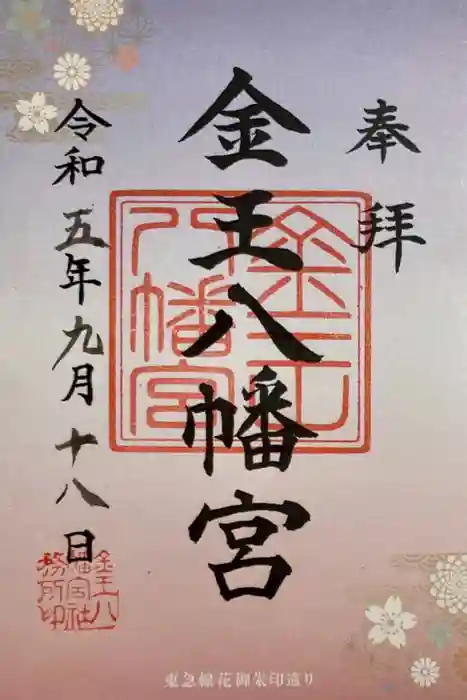 奉拝
金王八幡宮
令和五年九月十八日
金王八幡宮
金王八幡宮社務所印
東急線花御朱印巡り